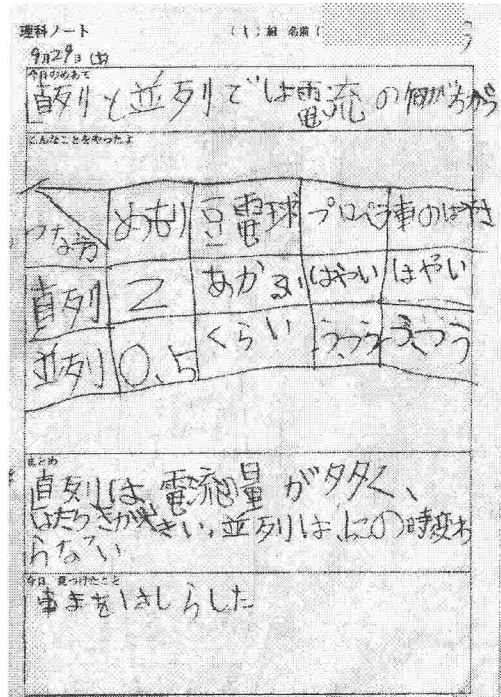 理科ノート (1)組 名前(
9月29日(土)
今日のめあて
直列と並列では電流の何がちがう
こんなことをやったよ
つなぎ方 めもり 豆電球 プロペラ 車のはやさ
直列 2 あかるい はやい はやい
並列 0.5 くらい ふつう ふつう
まとめ
直列は、電流量が多く、
はたらきが大きい。並列は、この時変わ
らない
今日、見つけたこと
車を